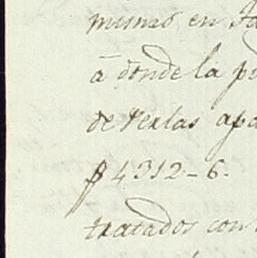 mismo en
á donde la
de Perlas
$ 4312-6.
tratados con